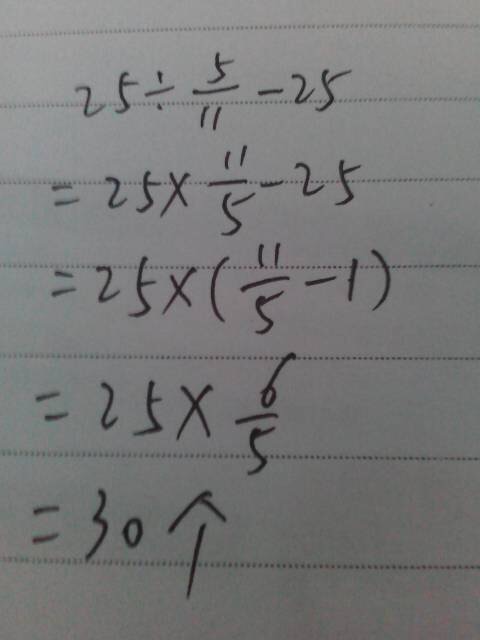 25÷5/11-25
=25×11/5-25
=25×(11/5-1)
=25×6/5
=30个